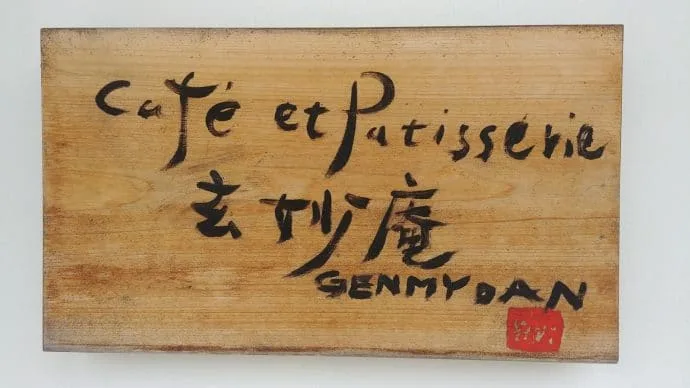 Café et Patisserie
玄妙庵
GENMYOAN